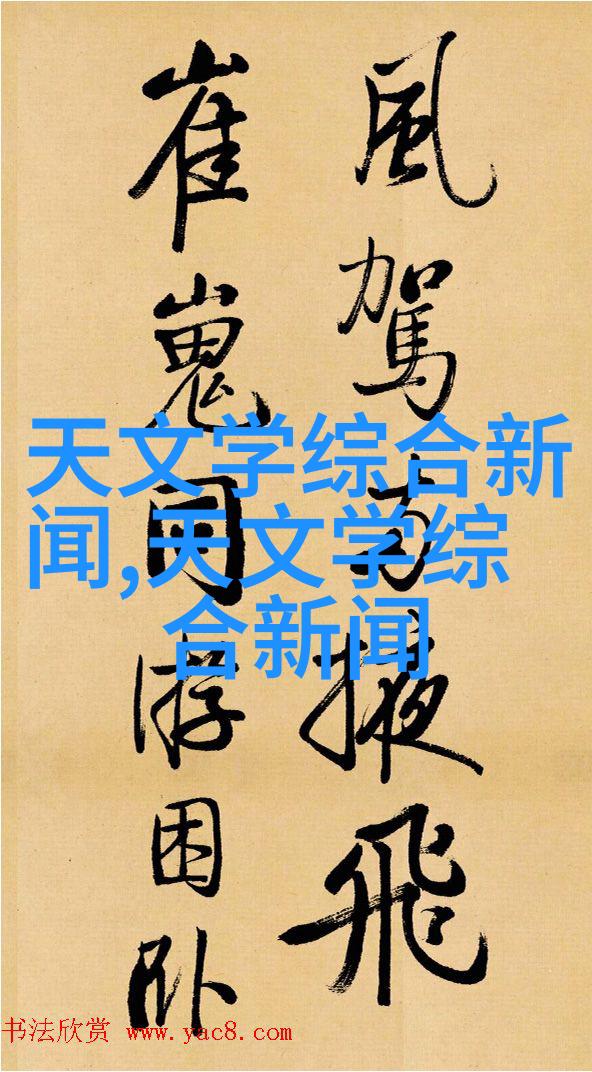 風駕掖飛
崔嵬游困卧
天文学综合新
闻,天文学综
合新闻
书法欣赏 www.yac8.com